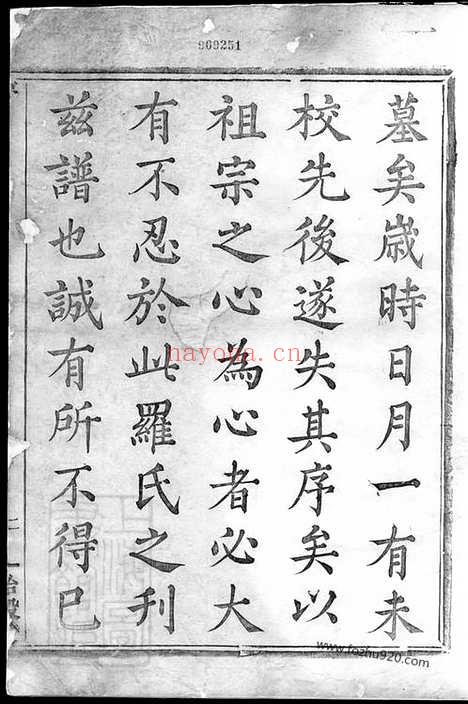 909251
墓矣歲時日月一有未
校先後遂失其序矣以
祖宗之心為心者必大
有不忍於此羅氏之刊
茲譜也誠有所不得已
hayona.cn
www.fozhu920.com